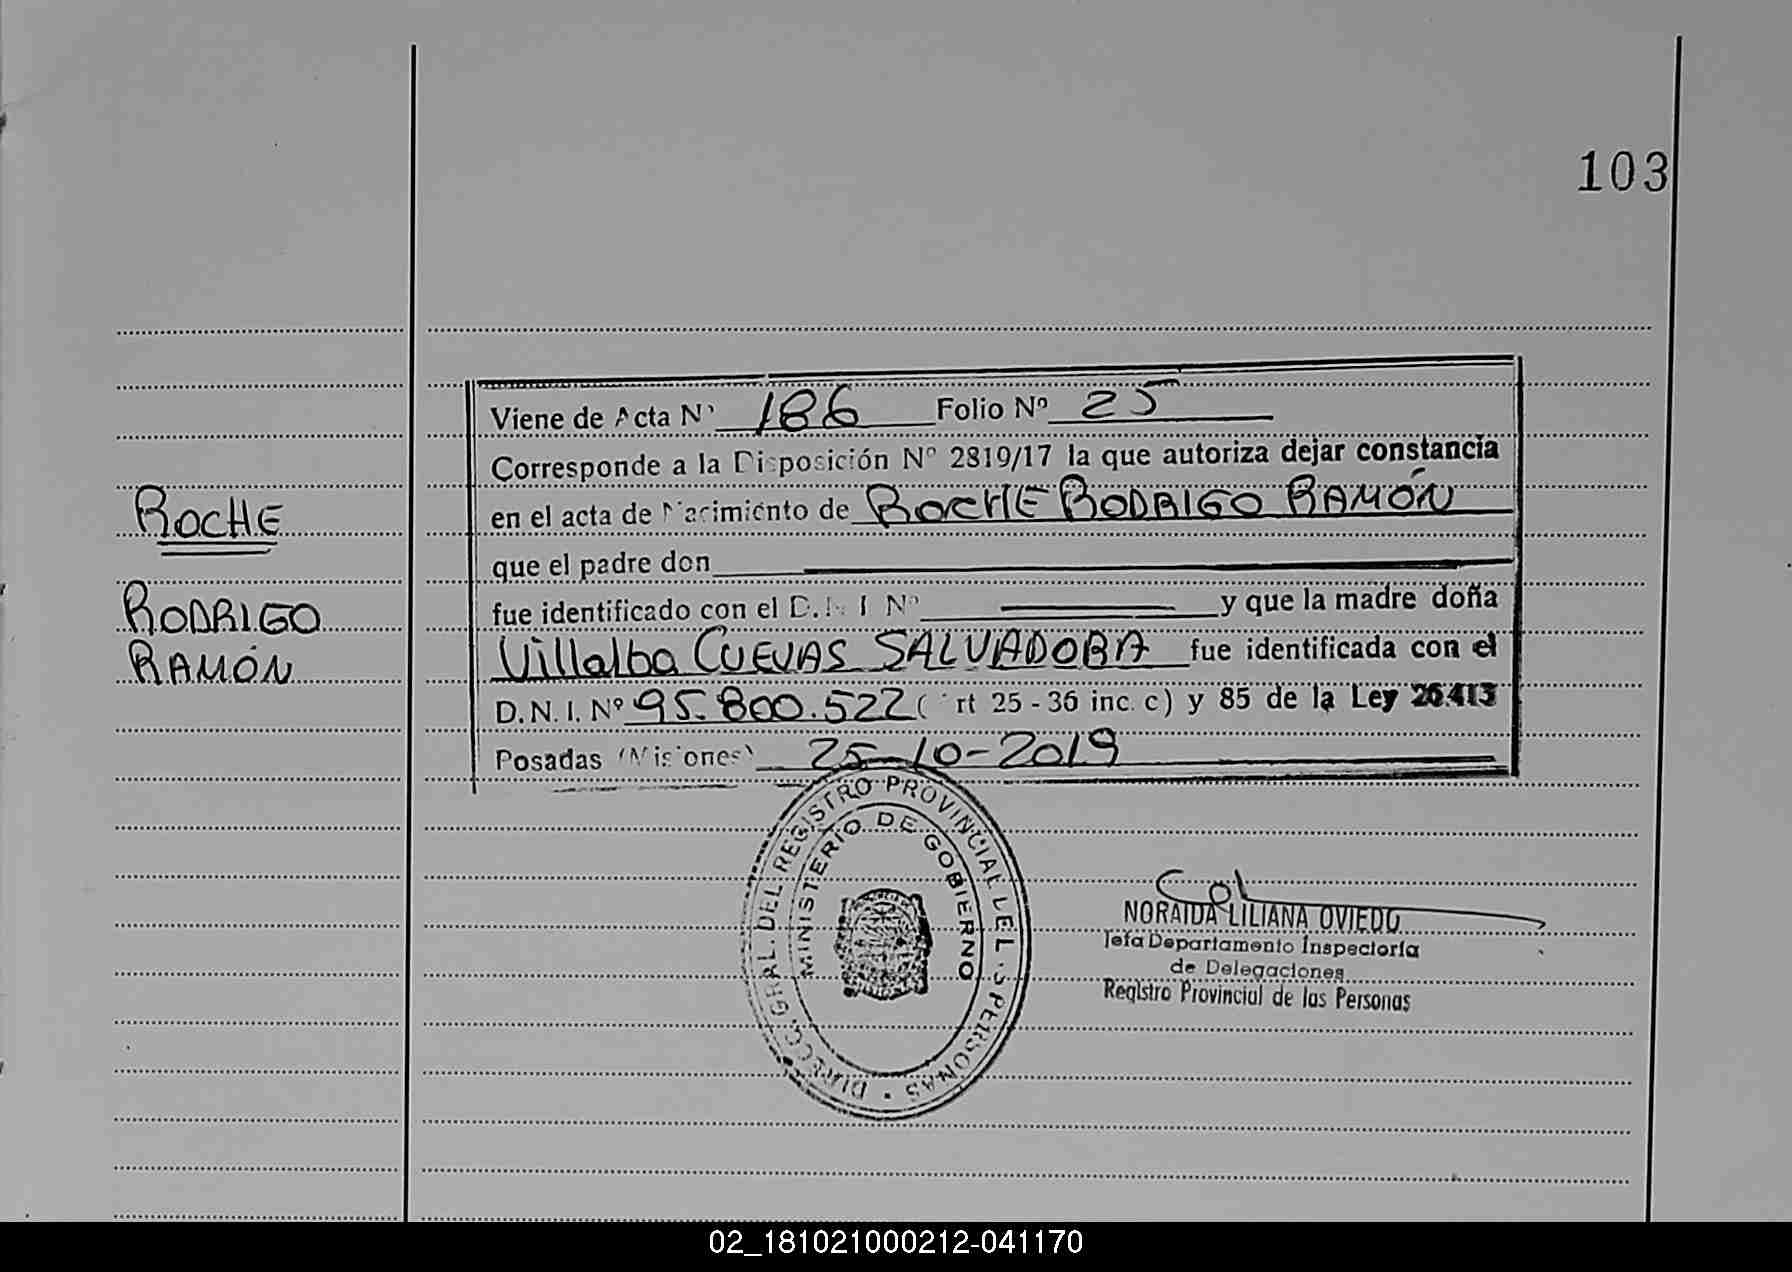 103
Viene de Acta Nº 186 Folio Nº 25
Corresponde a la Disposición Nº 2819/17 la que autoriza dejar constancia
en el acta de Nacimiento de ROCHE RODRIGO RAMÓN
que el padre don
fue identificado con el D.N.I Nº y que la madre doña
Villalba CUEVAS SALVADORA fue identificada con el
D.N.I. Nº 95.800.522 (Art 25 - 36 inc. c) y 85 de la Ley 26.413
Posadas (Misiones) 25-10-2019
ROCHE
RODRIGO
RAMÓN
DIRECC. GRAL. DEL REGISTRO PROVINCIAL DE L.S PERSONAS
MINISTERIO DE GOBIERNO
NORAIDA LILIANA OVIEDO
Jefa Departamento Inspectoría
de Delegaciones
Registro Provincial de las Personas
02_181021000212-041170